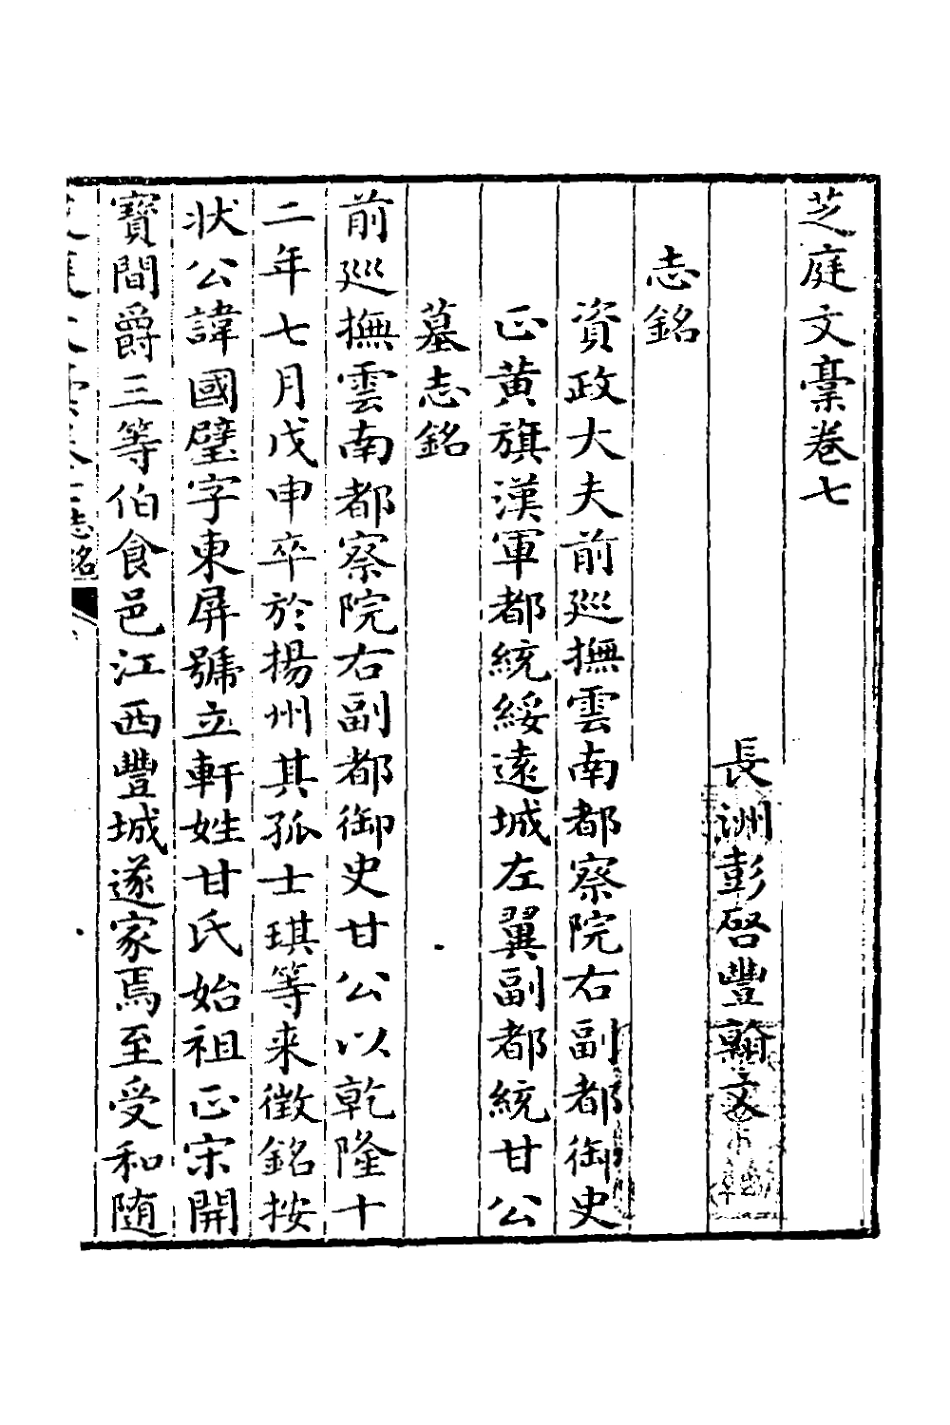 芝庭文稾卷七
長洲彭啓豐翰文
志銘
資政大夫前巡撫雲南都察院右副都御史
正黄旗漢軍都統綏遠城左翼副都統甘公
墓志銘
前巡撫雲南都察院右副都御史甘公以乾隆十
二年七月戊申卒於揚州其孤士琪等来徵銘按
狀公諱國璧字東屏號立軒姓甘氏始祖正宋開
寳間爵三等伯食邑江西豐城遂家焉至受和随
志銘